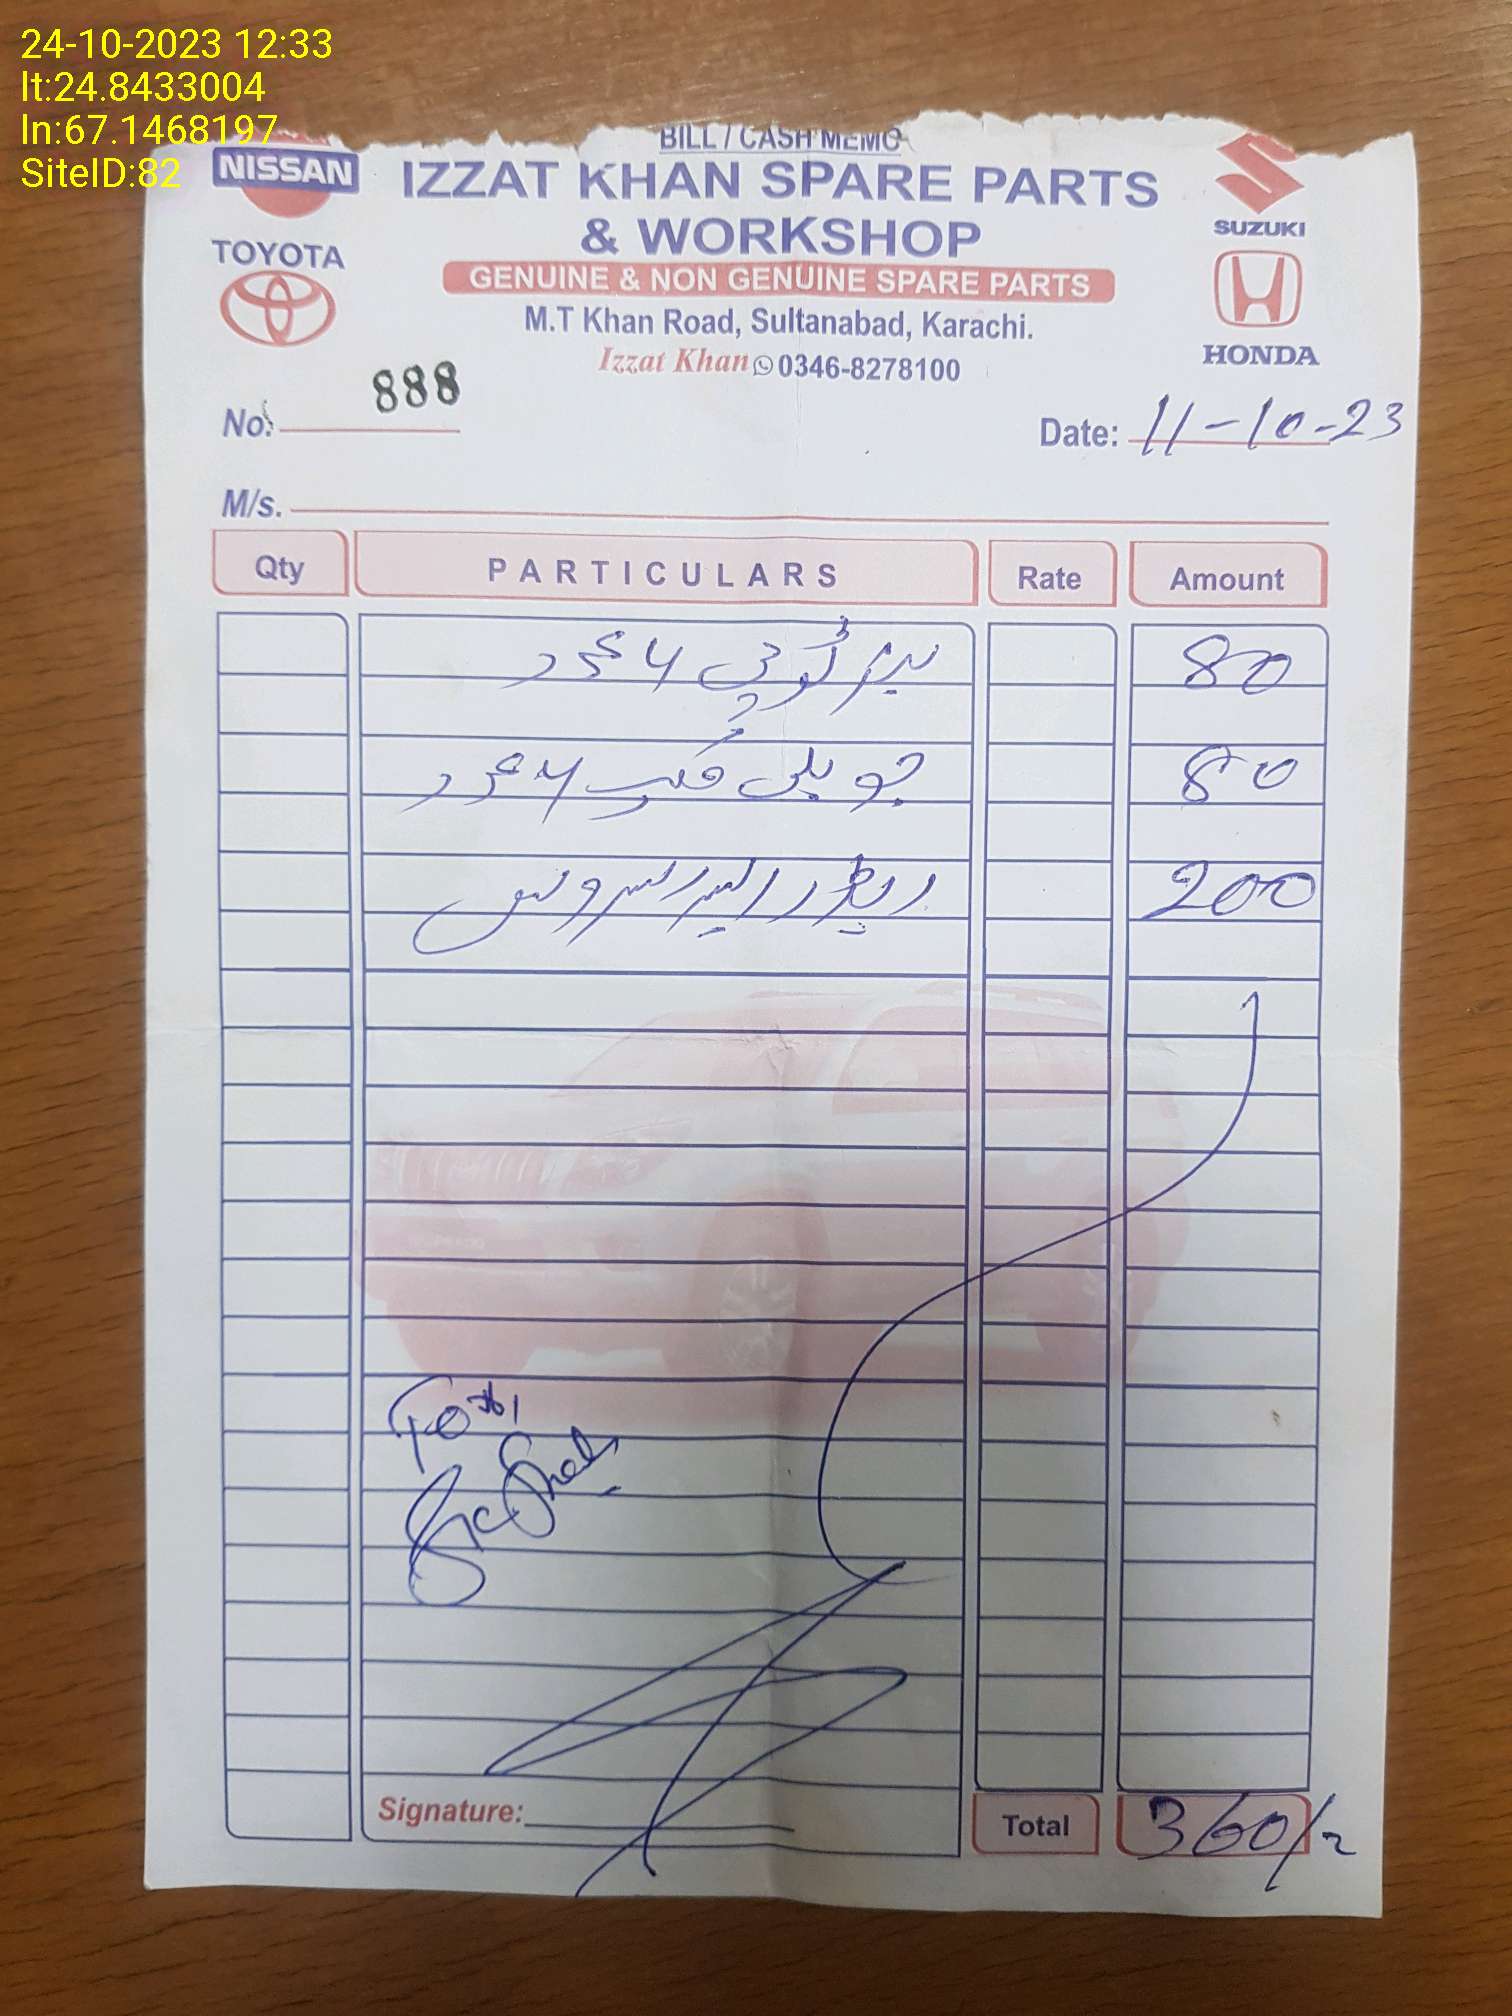 24-10-2023 12:33
lt:24.8433004
ln:67.1468197
SiteID:82
BILL / CASH MEMO
NISSAN
IZZAT KHAN SPARE PARTS
& WORKSHOP
SUZUKI
TOYOTA
GENUINE & NON GENUINE SPARE PARTS
M.T Khan Road, Sultanabad, Karachi.
HONDA
Izzat Khan 0346-8278100
No. 888
Date: 11-10-23
M/s.
Qty PARTICULARS Rate Amount
ٹوپی 4 عدد 80
4 عدد 80
سروس 200
Signature:
Total 360/-